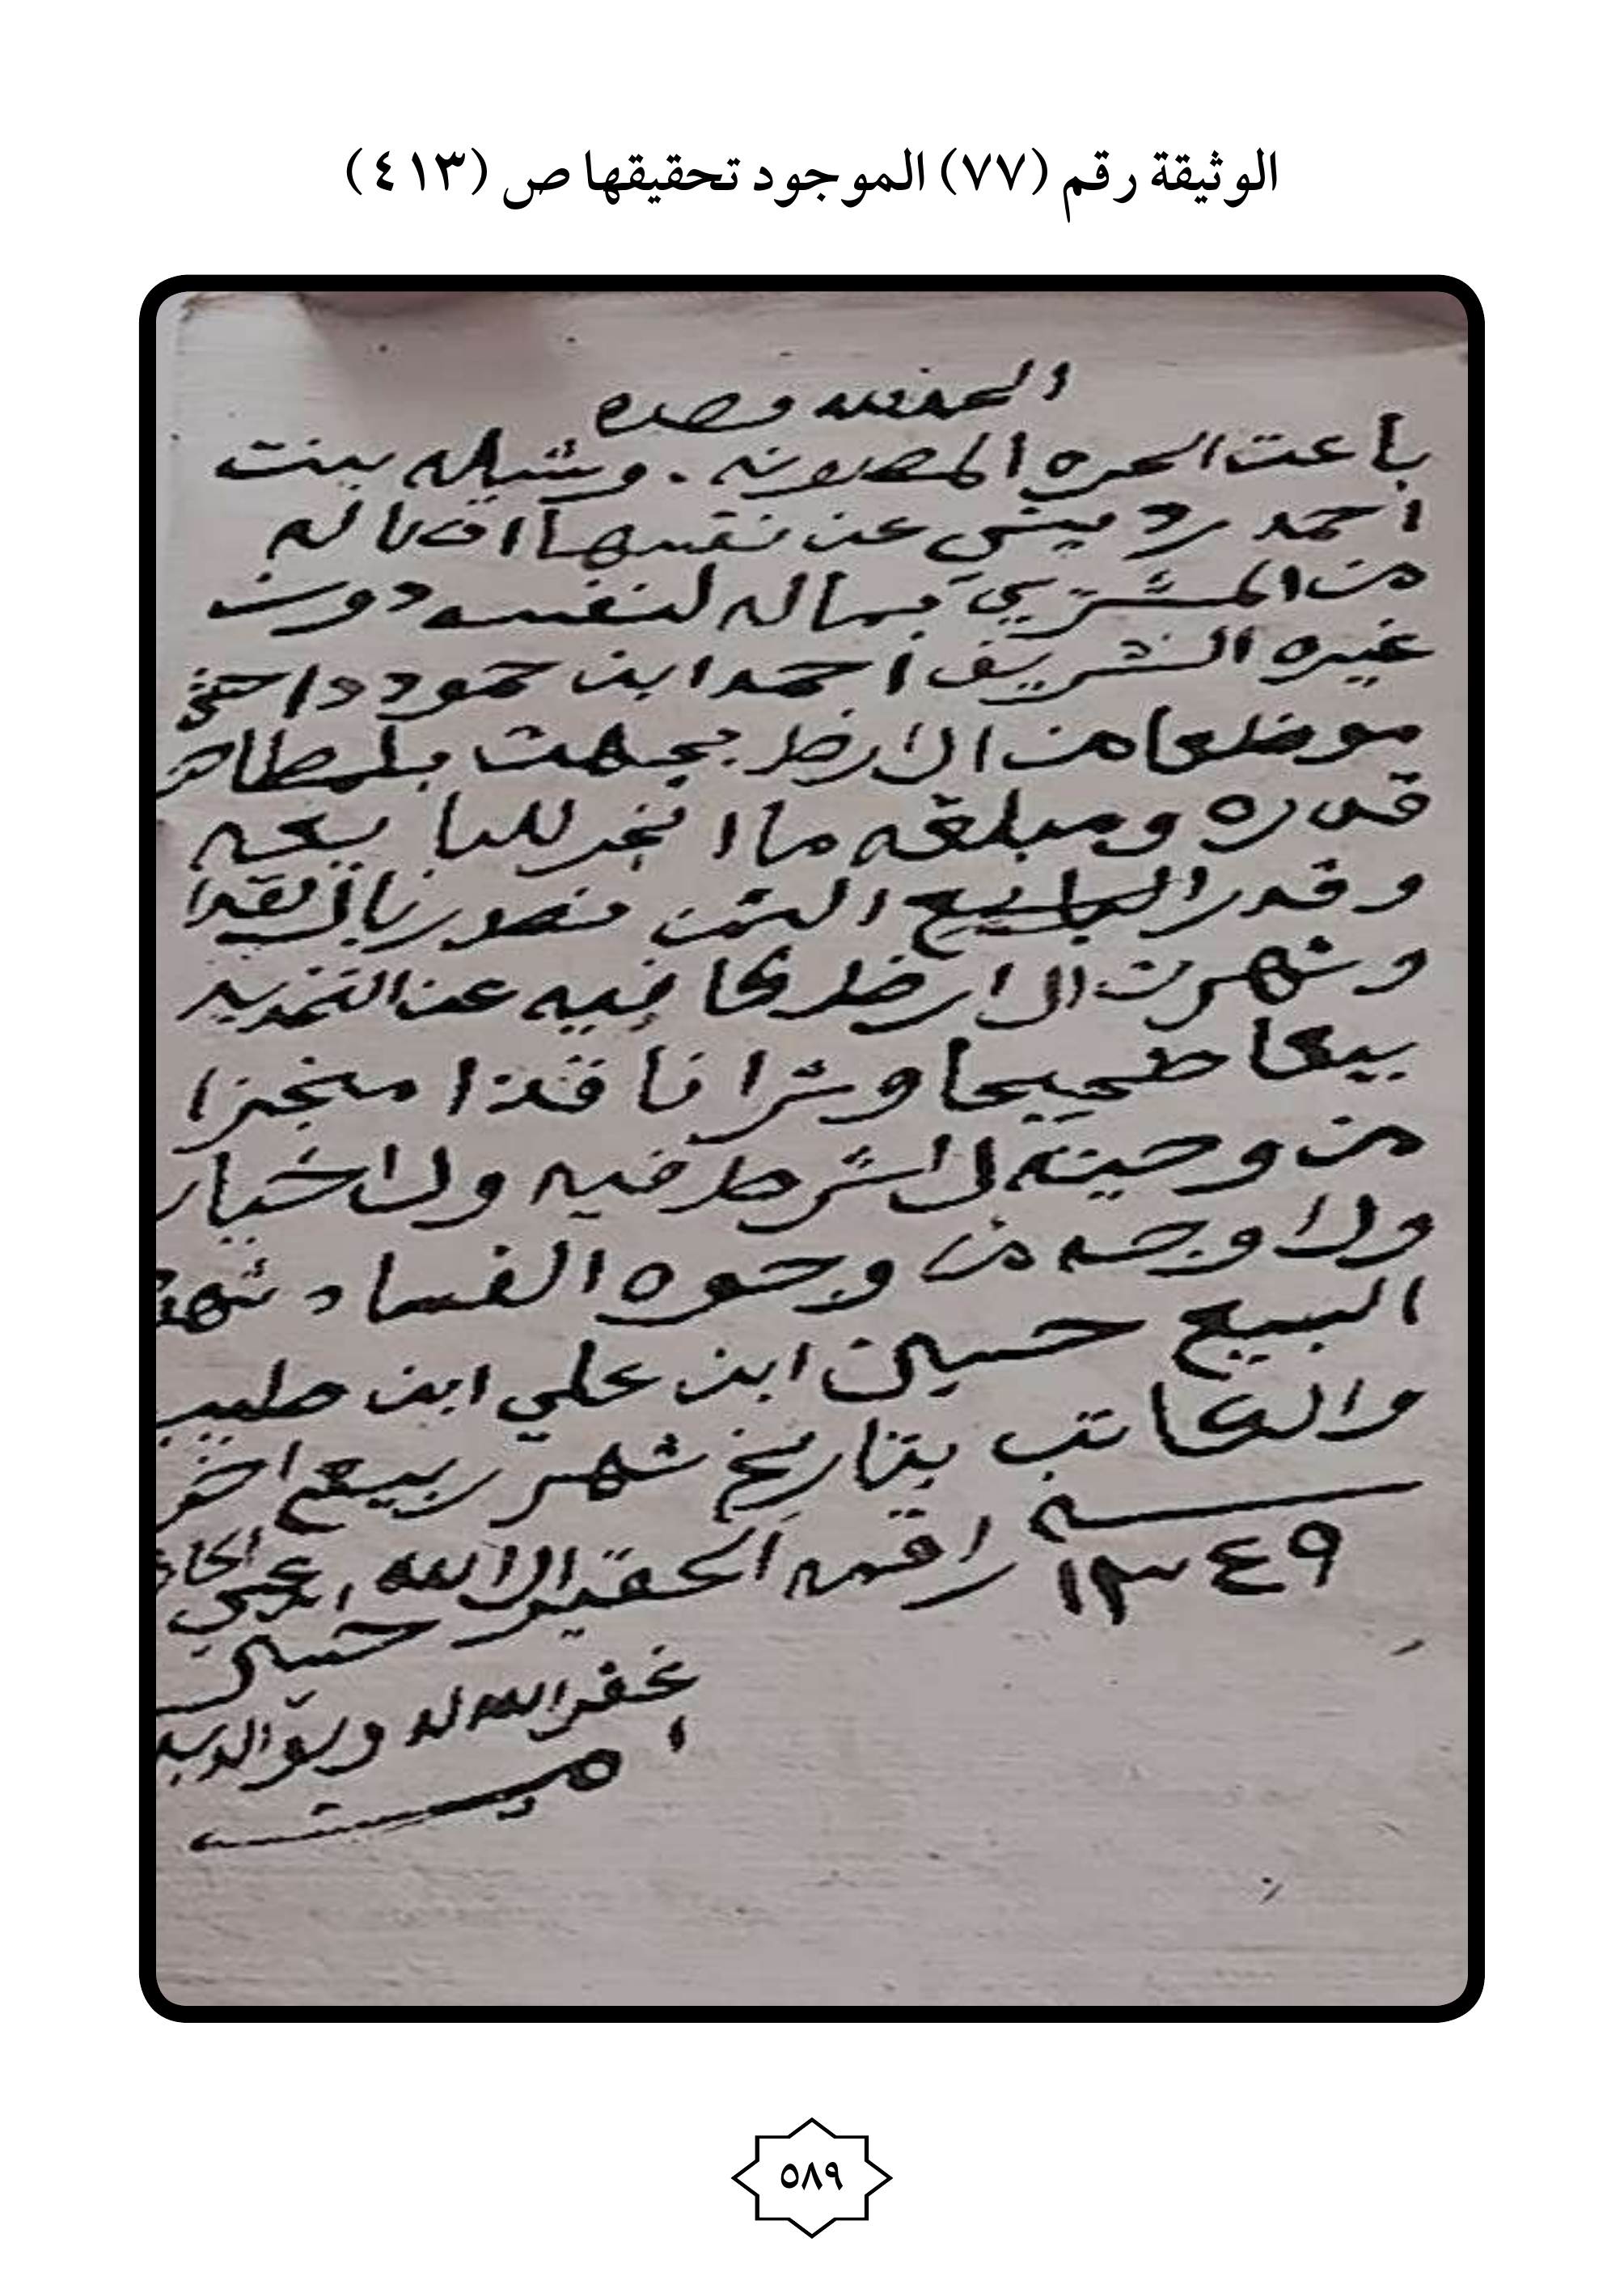 الوثيقة رقم (٧٧) الموجود تحقيقها ص (٤١٣)
الحمد لله وحده
باعت الحره المصونه . وشيله بنت
احمد رديني عن نفسها اقاله
من المشتري بماله لنفسه دون
غيره الشريف احمد ابن حمود
موضعا من الارظ بجهت
قدره ومبلغه ما انجر للبايعه
وقدر البايع الثمن ريال نقدا
وشهرت الارظ كافيه عن التحديد
بيعا صحيحا وشرا نافذا منجزا
من وحينه لا شرط فيه ولا خيار
ولا وجه من وجوه الفساد شهد
البيع حسين ابن علي ابن طيب
والكاتب بتاريخ شهر ربيع اخر
سنه
١٣٤٩ راقمه الحقير الا الله
حسين
غفر الله له ولوالديه
امين
٥٨٩